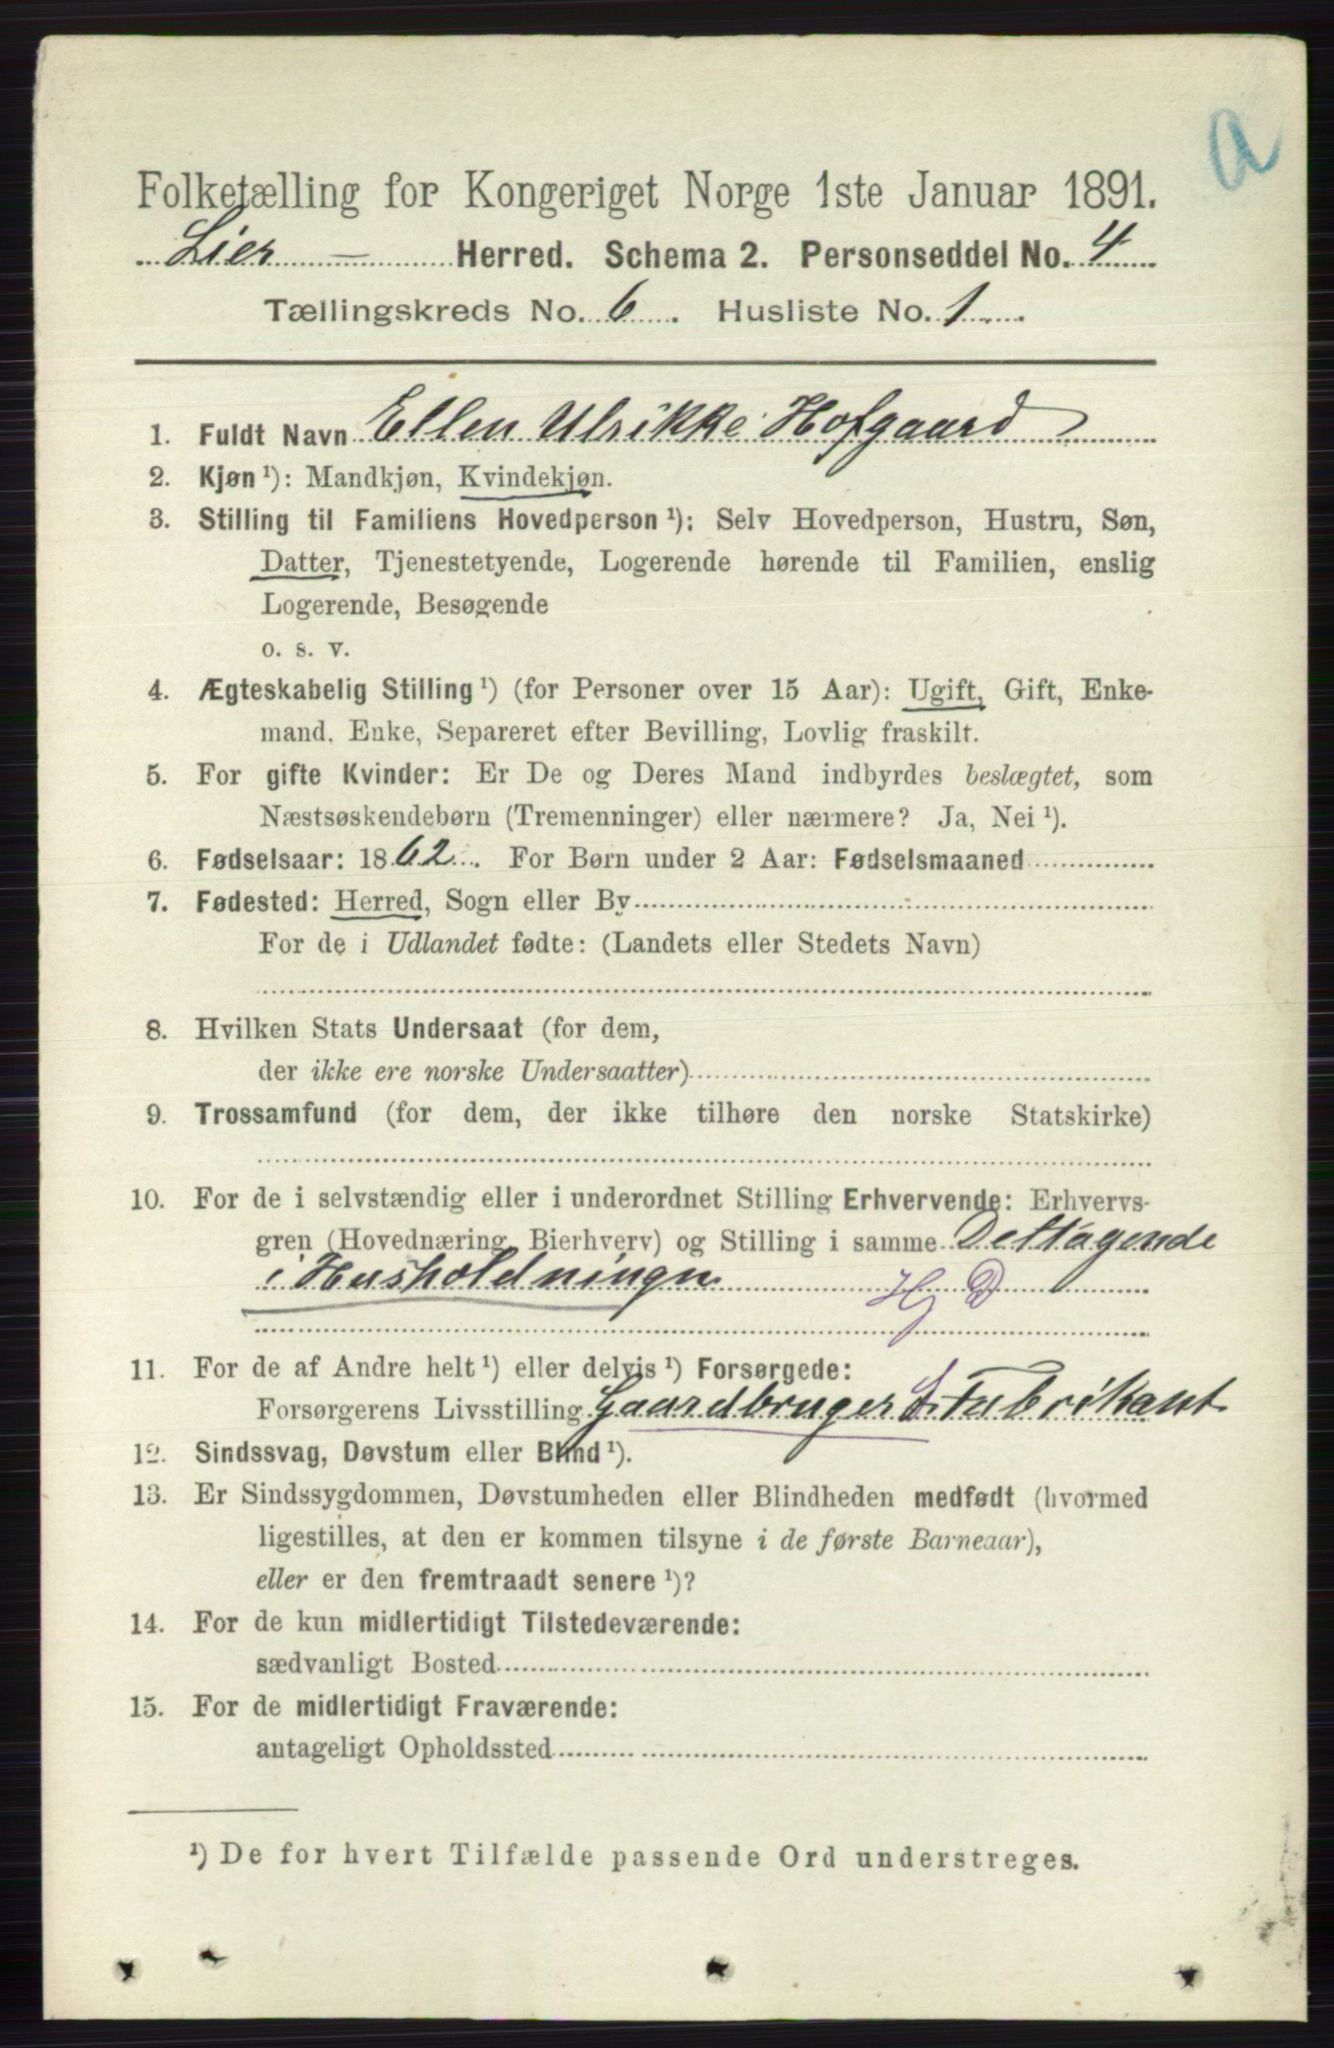 a
Folketælling for Kongeriget Norge 1ste Januar 1891.
Lier - Herred. Schema 2. Personseddel No. 4
Tællingskreds No. 6. Husliste No. 1
1. Fuldt Navn Ellen Ulrikke Hofgaard
2. Kjøn ¹): Mandkjøn, Kvindekjøn.
3. Stilling til Familiens Hovedperson ¹): Selv Hovedperson, Hustru, Søn,
Datter, Tjenestetyende, Logerende hørende til Familien, enslig
Logerende, Besøgende
o. s. v.
4. Ægteskabelig Stilling ¹) (for Personer over 15 Aar): Ugift, Gift, Enke-
mand, Enke, Separeret efter Bevilling, Lovlig fraskilt.
5. For gifte Kvinder: Er De og Deres Mand indbyrdes beslægtet, som
Næstsøskendebørn (Tremenninger) eller nærmere? Ja, Nei ¹).
6. Fødselsaar: 1862. For Børn under 2 Aar: Fødselsmaaned
7. Fødested: Herred, Sogn eller By
For de i Udlandet fødte: (Landets eller Stedets Navn)
8. Hvilken Stats Undersaat (for dem,
der ikke ere norske Undersaatter)
9. Trossamfund (for dem, der ikke tilhøre den norske Statskirke)
10. For de i selvstændig eller i underordnet Stilling Erhvervende: Erhvervs-
gren (Hovednæring, Bierhverv) og Stilling i samme Deltagende
i Husholdningn
Hj D
11. For de af Andre helt ¹) eller delvis ¹) Forsørgede:
Forsørgerens Livsstilling Gaardbruger & Fabrikant
12. Sindssvag, Døvstum eller Blind ¹).
13. Er Sindssygdommen, Døvstumheden eller Blindheden medfødt (hvormed
ligestilles, at den er kommen tilsyne i de første Barneaar),
eller er den fremtraadt senere ¹)?
14. For de kun midlertidigt Tilstedeværende:
sædvanligt Bosted
15. For de midlertidigt Fraværende:
antageligt Opholdssted
¹) De for hvert Tilfælde passende Ord understreges.